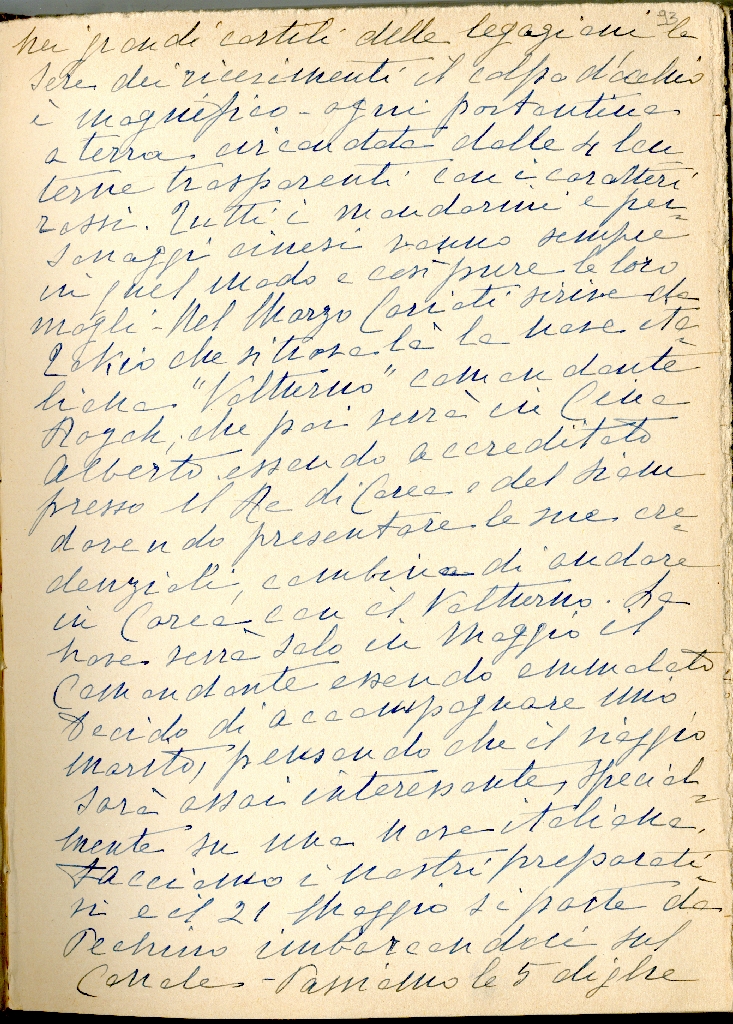 93
nei grandi cortili delle legazioni la
sera dei ricevimenti il colpo d'occhio
è magnifico - ogni portantina
a terra circondata dalle 4 lan
terne trasparenti con i caratteri
rossi. Tutti i mandarini e per-
sonaggi cinesi vanno sempre
in quel modo e così pure le loro
mogli - Nel Marzo Cariati scrive da
Tokio che si trova là la nave ita-
liana "Volturno" comandante
che poi verrà in Cina
Alberto essendo accreditato
presso il Re di Corea e del Siam
dovendo presentare le sue cre-
denziali, combina di andare
in Corea con il Volturno. La
nave verrà solo in Maggio il
Comandante essendo ammalato
Decido di accompagnare mio
marito, pensando che il viaggio
sarà assai interessante, special-
mente su una nave italiana.
Facciamo i nostri preparati
vi e il 21 Maggio si parte da
Pechino imbarcandoci sul
Canale - Passiamo le 5 dighe